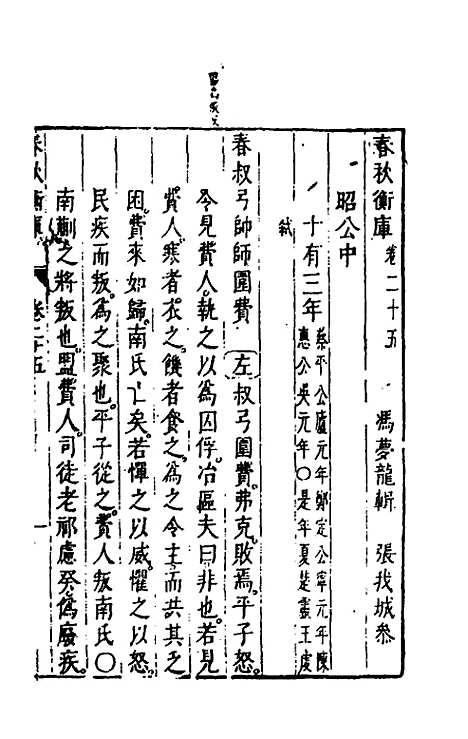 春秋衡庫 卷二十五 馮夢龍輯 張我城參
昭公中
十有三年 蔡平公廬元年鄭定公寧元年陳
惠公吳元年〇是年夏楚靈王虔
弒
春叔弓帥師圍費 左 叔弓圍費弗克敗焉平子怒
令見費人執之以為囚俘冶區夫曰非也若見
費人寒者衣之饑者食之為之令主而共其乏
困費來如歸南氏亡矣若憚之以威懼之以怒
民疾而叛為之聚也平子從之費人叛南氏〇
南蒯之將叛也盟費人司徒老祁慮癸偽廢疾
春秋衡庫 卷二十五 一